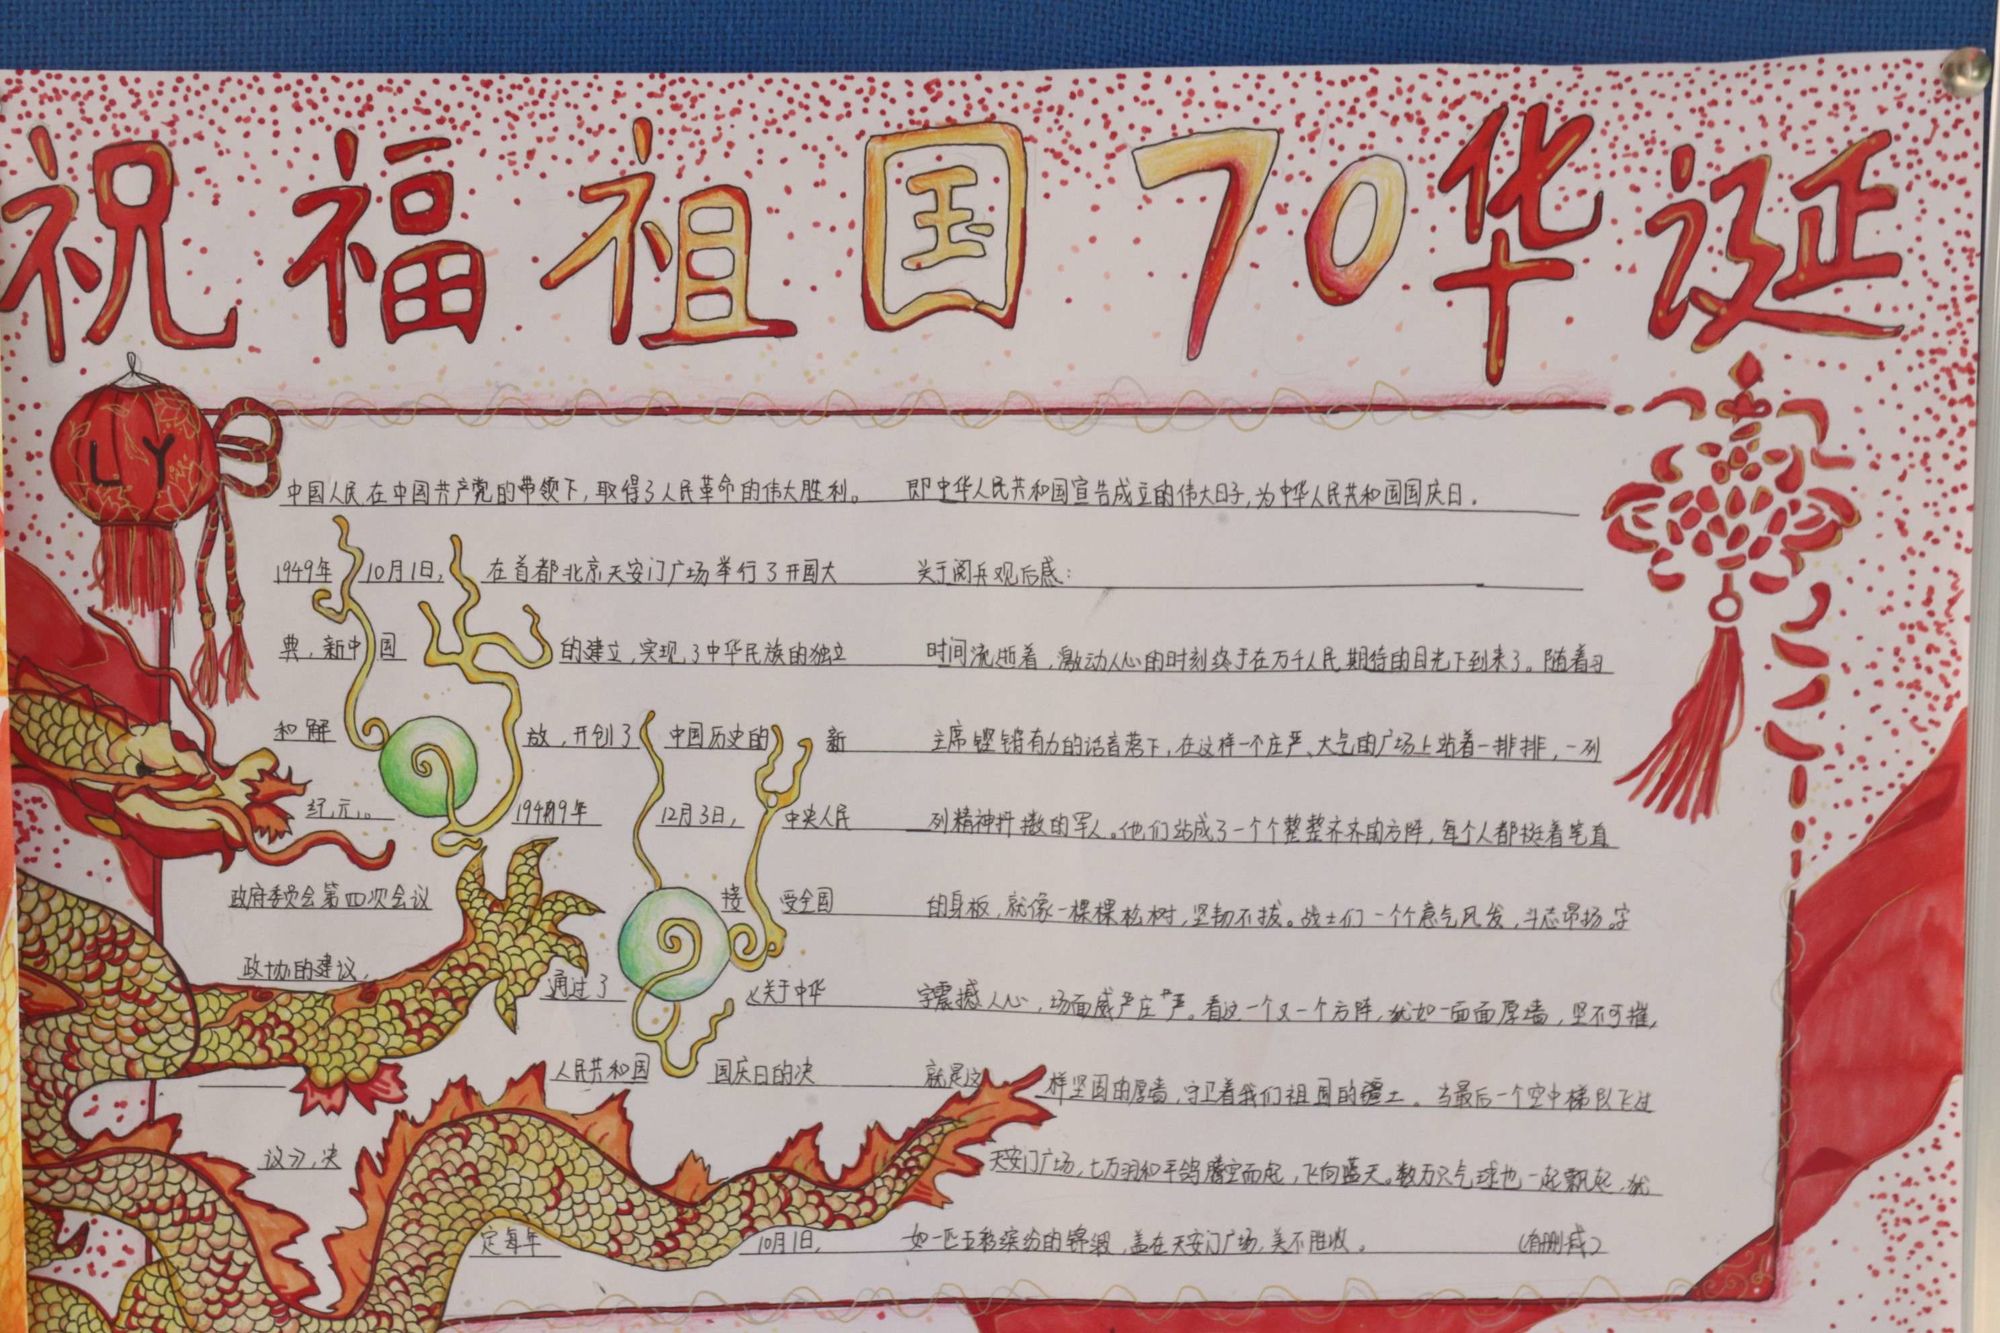 祝福祖国70华诞
LY
中国人民在中国共产党的带领下,取得了人民革命的伟大胜利。
1949年10月1日,在首都北京天安门广场举行了开国大
典,新中国的建立,实现了中华民族的独立
和解放,开创了中国历史的新
纪元。1949年12月3日,中央人民
政府委员会第四次会议接受全国
政协的建议,通过了《关于中华
人民共和国国庆日的决
议》,决
定每年10月1日,
即中华人民共和国宣告成立的伟大日子,为中华人民共和国国庆日。
关于阅兵观后感:
时间流逝着,激动人心的时刻终于在万千人民期待的目光下到来了。随着习
主席铿锵有力的话音落下,在这样一个庄严、大气的广场上站着一排排,一列
列精神抖擞的军人。他们站成了一个个整整齐齐的方阵,每个人都挺着笔直
的身板,就像一棵棵松树,坚韧不拔。战士们一个个意气风发,斗志昂扬。字
字震撼人心,场面威严庄严。看这一个又一个方阵,犹如一面面厚墙,坚不可摧,
就是这样坚固的厚墙,守卫着我们祖国的疆土。当最后一个空中梯队飞过
天安门广场,七万羽和平鸽腾空而起,飞向蓝天。数万只气球也一起飘起,犹
如一匹五彩缤纷的锦缎,盖在天安门广场,美不胜收。(有删减)